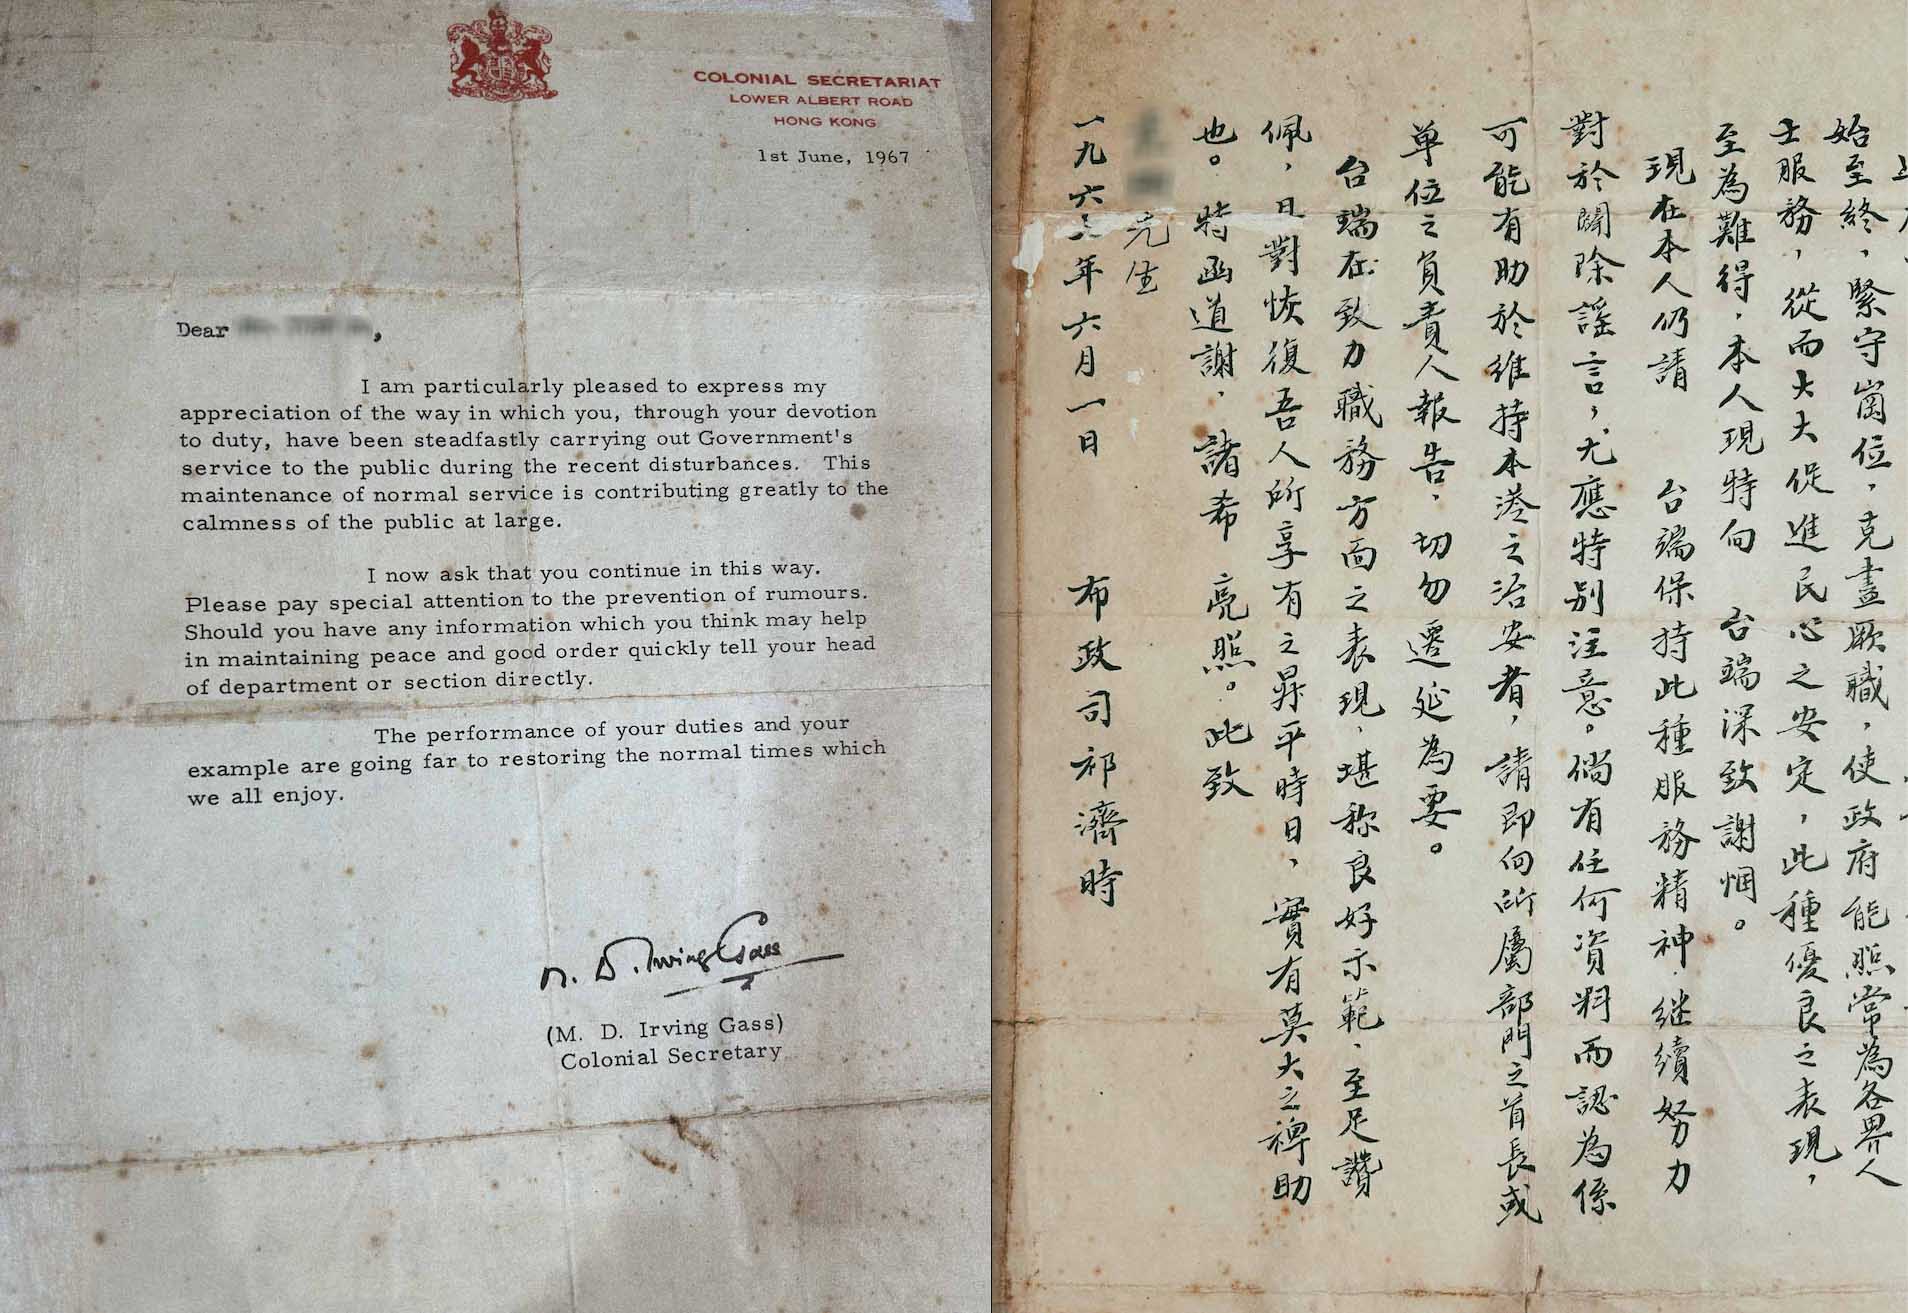 COLONIAL SECRETARIAT
LOWER ALBERT ROAD
HONG KONG
1st June, 1967
Dear
I am particularly pleased to express my
appreciation of the way in which you, through your devotion
to duty, have been steadfastly carrying out Government's
service to the public during the recent disturbances. This
maintenance of normal service is contributing greatly to the
calmness of the public at large.
I now ask that you continue in this way.
Please pay special attention to the prevention of rumours.
Should you have any information which you think may help
in maintaining peace and good order quickly tell your head
of department or section directly.
The performance of your duties and your
example are going far to restoring the normal times which
we all enjoy.
M. D. Irving Gass
(M. D. Irving Gass)
Colonial Secretary
始至終，緊守崗位，克盡厥職，使政府能照常為各界人
士服務，從而大大促進民心之安定，此種優良之表現，
至為難得，本人現特向 台端深致謝悃。
現在本人仍請 台端保持此種服務精神，継續努力
對於闢除謠言，尤應特別注意。倘有任何資料而認為係
可能有助於維持本港之治安者，請即向所屬部門之首長或
單位之負責人報告，切勿遷延為要。
台端在致力職務方面之表現，堪称良好示範，至足讚
佩，且對恢復吾人所享有之昇平時日，實有莫大之裨助
也。特函道謝，諸希 亮照。此致
先生
布政司祁濟時
一九六七年六月一日